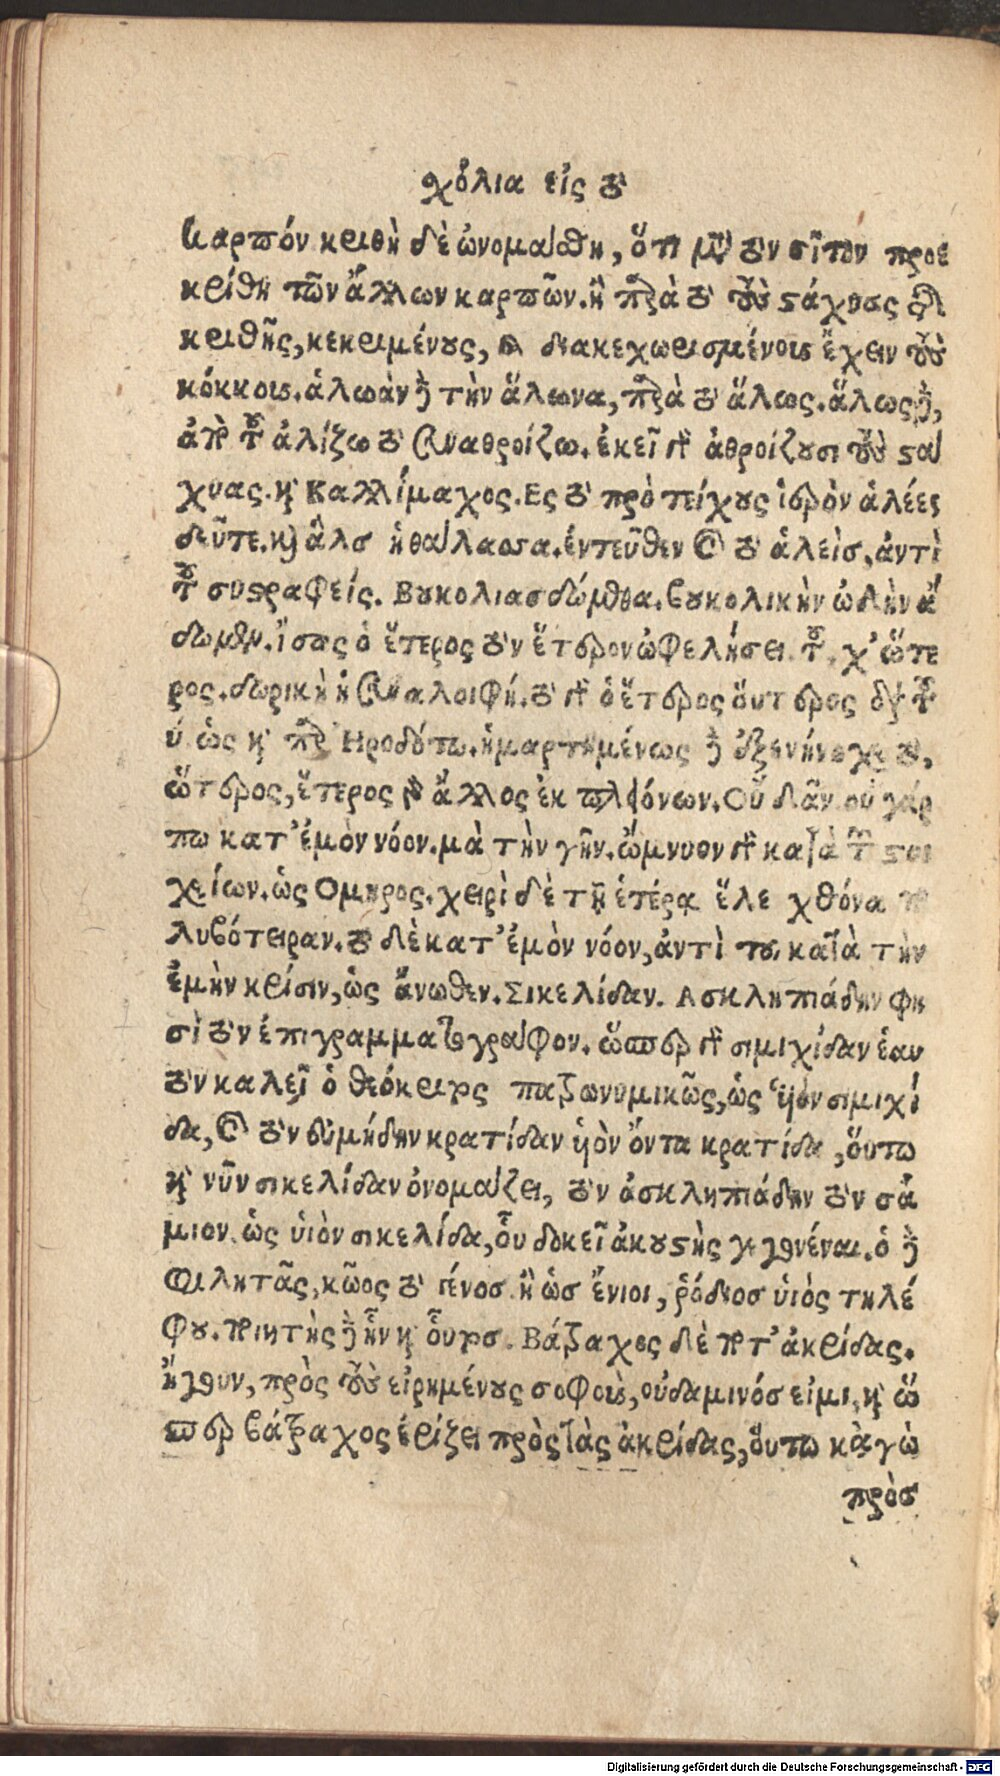 χόλια εἰς τὸ
καρπόν κριθὴ δὲ ὠνομάσθη, ὅτι μετὰ τὸν σῖτον προε
κρίθη τῶν ἄλλων καρπῶν. ἢ παρὰ τὸ τοὺς στάχυας τῆς
κριθῆς, κεκριμένους, καὶ διακεχωρισμένους ἔχειν τοὺς
κόκκους. ἁλωὰν δὲ τὴν ἅλωνα, παρὰ τὸ ἅλως. ἅλως δὲ,
ἀπὸ τοῦ ἁλίζω τὸ συναθροίζω. ἐκεῖ γὰρ ἀθροίζουσι τοὺς στά
χυας. καὶ Καλλίμαχος. Ες τὸ πρὸ τείχους ἱερὸν ἁλέες
δεῦτε. καὶ ἃλσ ἡ θάλασσα. ἐντεῦθεν καὶ τὸ ἁλεὶσ, ἀντὶ
τοῦ συστραφείς. Βουκολιασδώμεθα. βουκολικὴν ὠδὴν ἄ
δωμεν. ἴσως ὁ ἕτερος τὸν ἕτερον ὠφελήσει. τοῦ, χ' ὥτε
ρος. δωρικὴ ἡ συναλοιφή. τὸ γὰρ ὁ ἕτερος οὕτερος διὰ τοῦ
ύ. ὡς καὶ παρ' Ηροδότω. ἡμαρτημένως δὲ ἐξενήνοχε τὸ,
ὥτερος, ἕτερος καὶ ἄλλος ἐκ πλφόνων. Οὐ δᾶν. οὐ γάρ
πω κατ' ἐμὸν νόον. μὰ τὴν γῆν. ὤμνυον γὰρ κατὰ τῶν στοι
χείων. ὡς Ομηρος. χειρὶ δὲ τῇ ἑτέρᾳ ἕλε χθόνα που
λυβότειραν. τὸ δὲ κατ' ἐμὸν νόον, ἀντὶ του, κατὰ τὴν
ἐμὴν κρίσιν, ὡς ἄνωθεν. Σικελίδαν. Ασκληπιάδην φη
σὶ τὸν ἐπιγραμματογράφον. ὥσπερ γὰρ σιμιχίδαν ἑαυ
τὸν καλεῖ ὁ θεόκριτος πατρωνυμικῶς, ὡς υἱὸν σιμιχί
δα, καὶ τὸν εὐμήδην κρατίδαν υἱὸν ὄντα κρατίδα, οὕτω
καὶ νῦν σικελίδαν ὀνομάζει, τὸν ἀσκληπιάδην τὸν σά
μιον. ὡς ὑιὸν σικελίδα, οὗ δοκεῖ ἀκουστὴς γεγονέναι. ὁ δὲ
Φιλητᾶς, κῶος τὸ γένοσ. ἢ ὡσ ἔνιοι, ῥόδιοσ ὑιὸς τηλέ
φου. ποιητὴς δὲ ἦν καὶ οὗτοσ. Βάτραχος δὲ ποτ' ἀκρίδας.
ἤγουν, πρὸς τοὺς εἰρημένους σοφοὺς, οὐδαμινόσ εἰμι, καὶ ὥ
σπερ βάτραχος ἐρίζει πρὸς τὰς ἀκρίδας, οὕτω κἀγὼ
πρὸσ
Digitalisierung gefördert durch die Deutsche Forschungsgemeinschaft - DFG